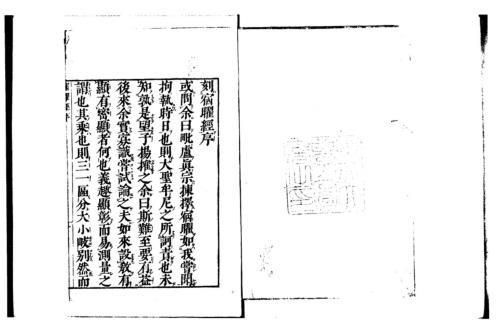 刻宿曜經序
或問余曰毗盧眞宗揀擇宿曜如我嘗聞
拘執時日也則大聖牟尼之所訶責也未
知孰是望子揚搉之余曰斯難至要有益
後來余實寡識嘗試論之夫如來設敎有
顯有密顯者何也義趣顯彰而易測量之
謂也其乘也則三一區分大小畯別然而